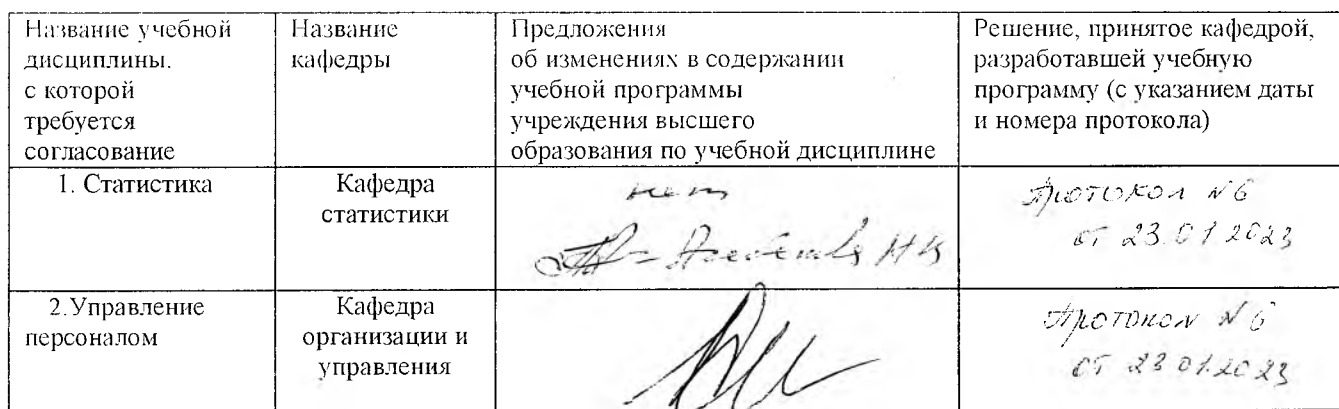 Название учебной
дисциплины.
с которой
требуется
согласование
Название
кафедры
Предложения
об изменениях в содержании
учебной программы
учреждения высшего
образования по учебной дисциплине
Решение, принятое кафедрой,
разработавшей учебную
программу (с указанием даты
и номера протокола)
1. Статистика
Кафедра
статистики
нет
Протокол №6
от 23.01.2023
2.Управление
персоналом
Кафедра
организации и
управления
Протокол №6
от 23.01.2023